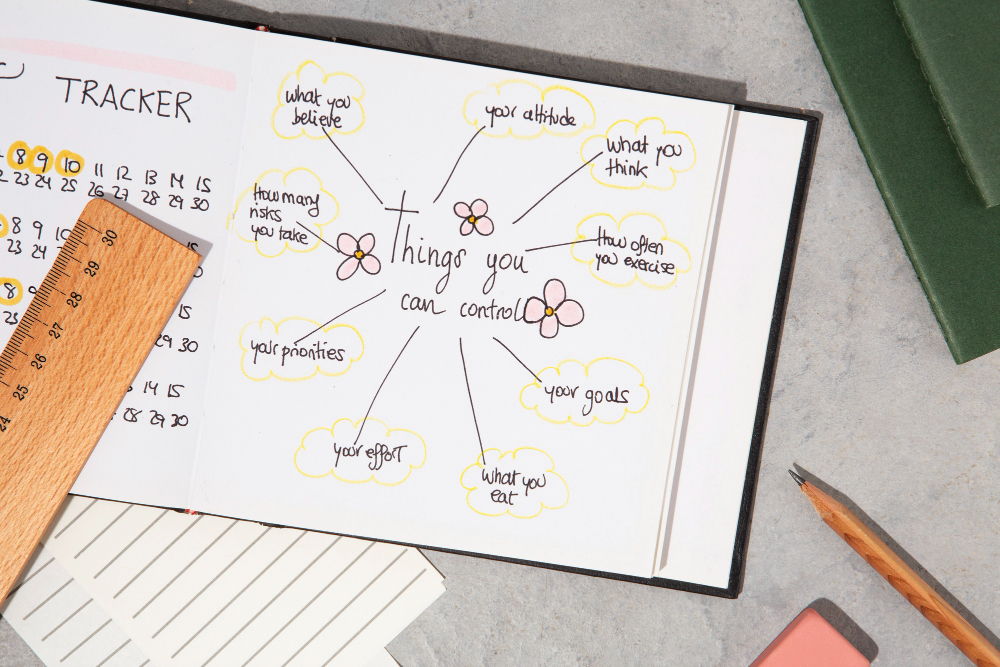 TRACKER
8 9 10 11 12 13 14 15
23 24 25 26 27 28 29 30
8 9 10
23 24
8 9
23
15
29 30
14 15
28 29 30
30
29
28
27
26
25
24
what you
believe
your attitude
what you
think
How many
risks
you take
How often
you exercise
Things you
can control
your priorities
your goals
your effort
what you
eat